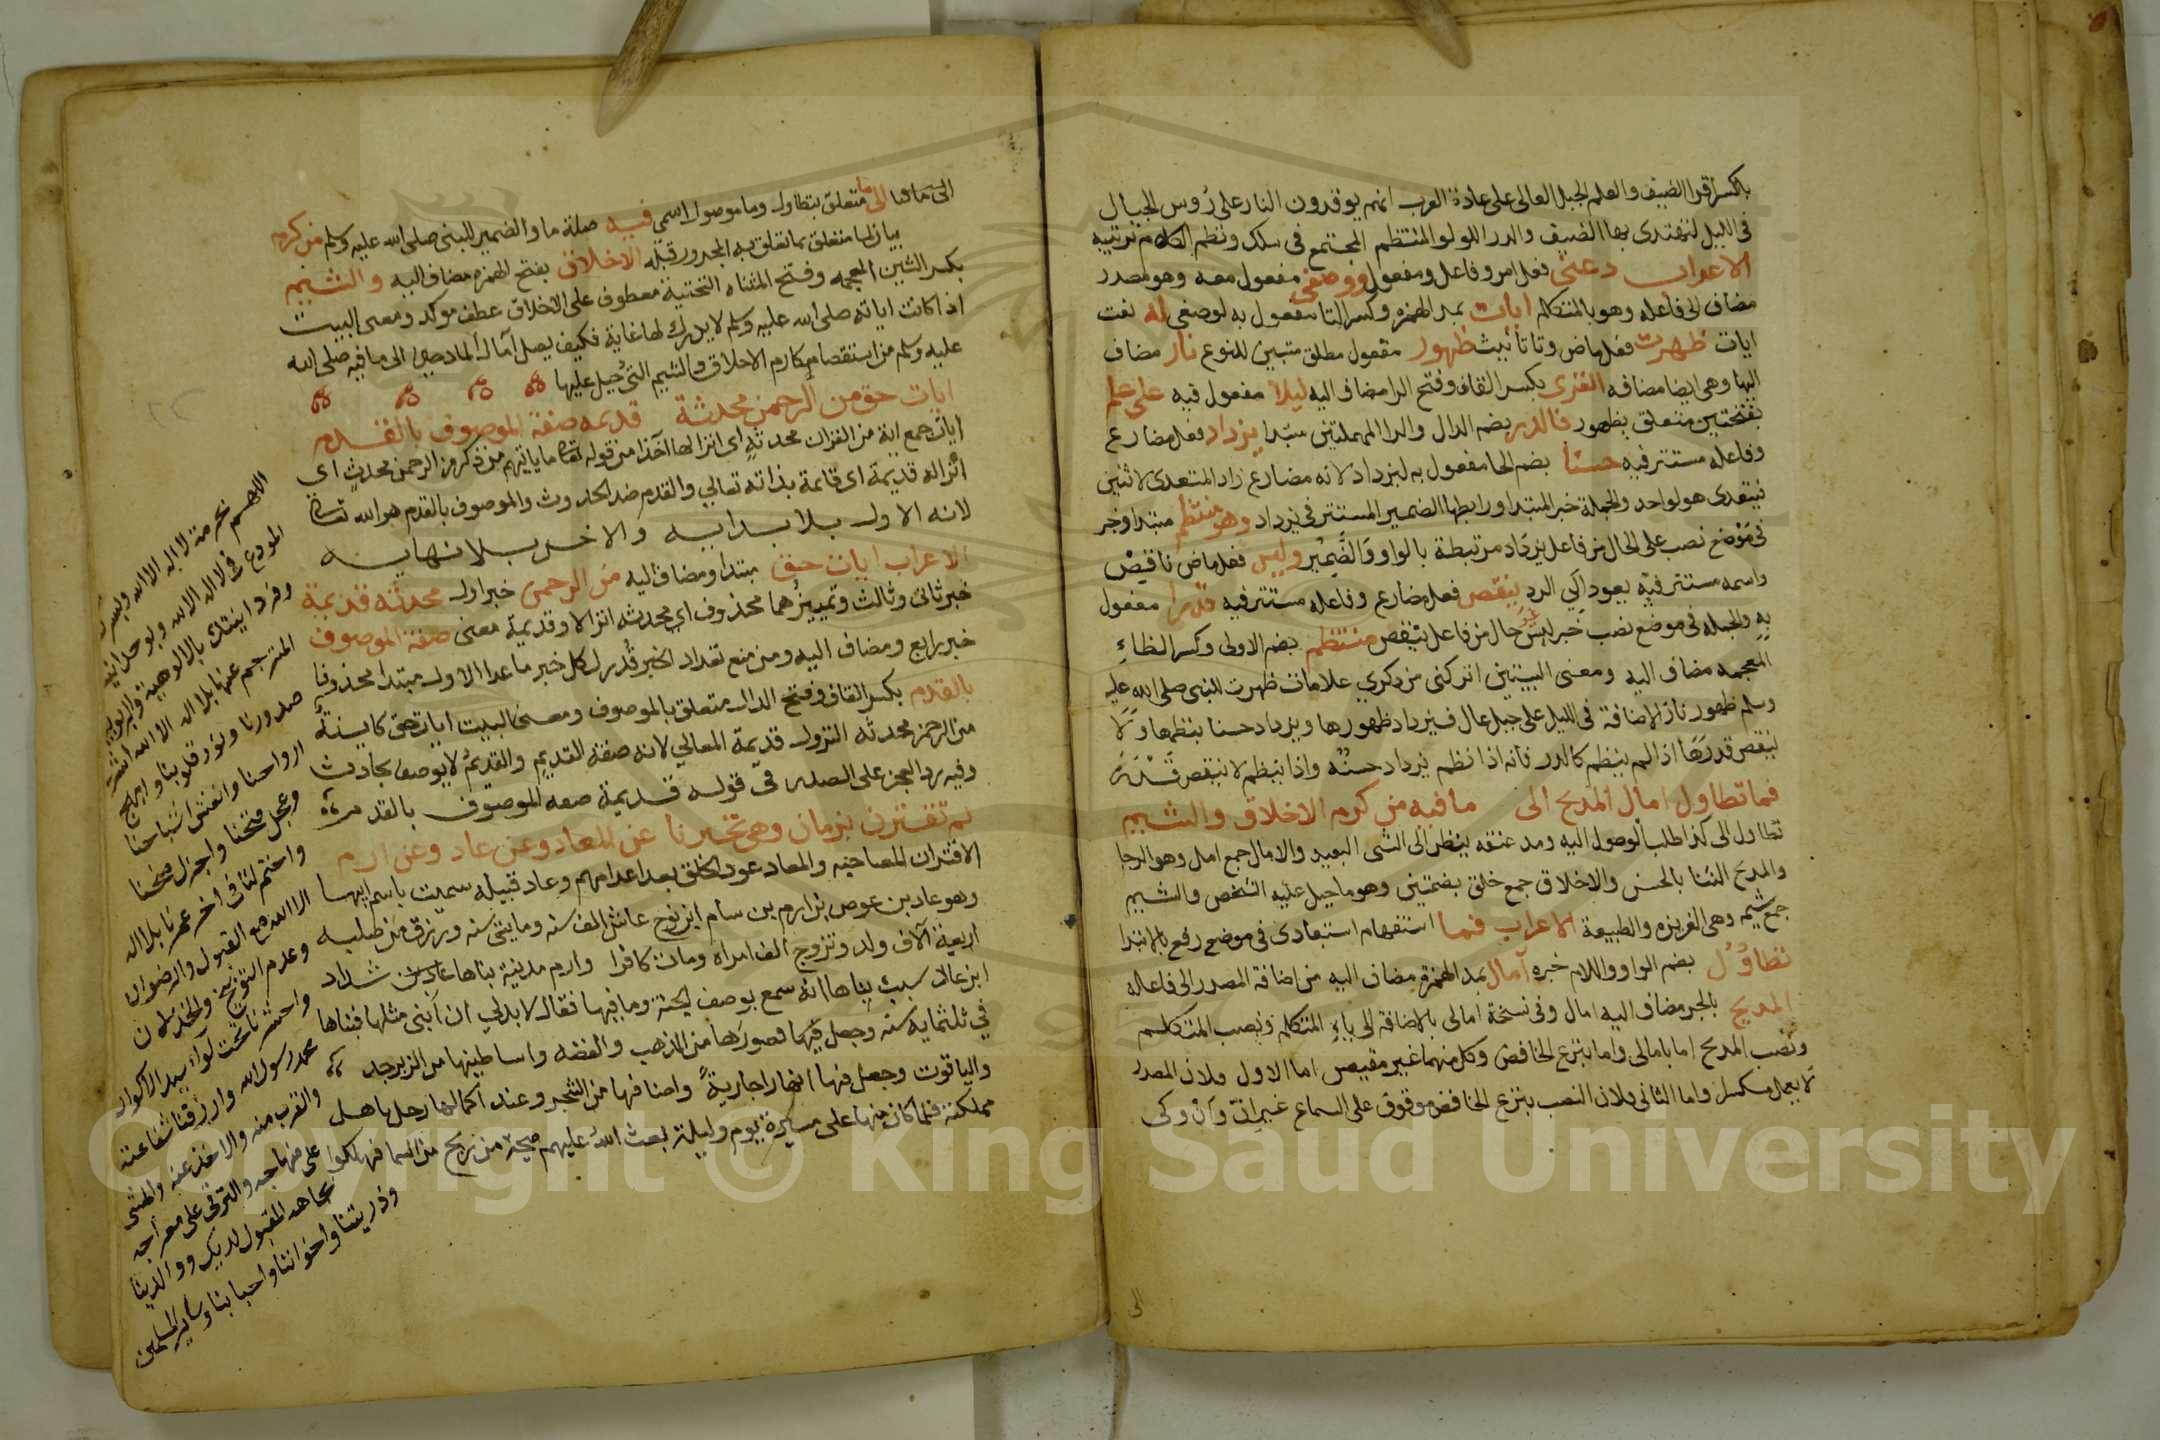 بالكسر قرا الضيف والعلم الجبل العالى على عادة العرب انهم يوقدون النار على رؤس الجبال
فى الليل لتهتدى بها الضيف والدر اللولو المنتظم المجتمع فى سلك ونظم الكلام ترتيبه
الاعراب دعنى فعل امر وفاعل ومفعول ووصفى مفعول معه وهو مصدر
مضاف الى فاعله وهو يا المتكلم ايات بمد الهمزه وكسر التا مفعول به لوصفى له نعت
ايات ظهرت فعل ماض وتا تأنيث ظهور مفعول مطلق مبين للنوع نار مضاف
اليها وهى ايضا مضافه القرى بكسر القاف وفتح الرا مضاف اليه ليلا مفعول فيه على علم
بفتحتين متعلق بظهور فالدر بضم الدال والرا المهملتين مبتدا يزداد فعل مضارع
وفاعله مستتر فيه حسنا بضم الحا مفعول به ليزداد لانه مضارع زاد المتعدى لاثنين
فيتعدى هو لواحد والجملة خبر المبتدا ورابطها الضمير المستتر فى يزداد وهو منتظم مبتدا وخبر
فى موضع نصب على الحال من فاعل يزداد مرتبطة بالواو والضمير وليس فعل ماض ناقص
واسمه مستتر فيه يعود الى الدر ينقص فعل مضارع وفاعله مستتر فيه قدرا مفعول
به والجمله فى موضع نصب خبر ليس غير حال من فاعل ينقص منتظم بضم الاولى وكسر الظاء
المعجمه مضاف اليه ومعنى البيتين اتركنى من ذكرى علامات ظهرت للنبى صلى الله عليه
وسلم ظهور نار الاضافة فى الليل على جبل عال فيزداد ظهورها ويزداد حسنا بنظمها ولا
ينقص قدرها اذا لم ينظم كالدر فانه اذا نظم يزداد حسنه واذا لم ينظم لا ينقص قدره
فما تطاول امال المديح الى ما فيه من كرم الاخلاق والشيم
تطاول الى كذا طلب الوصول اليه ومد عنقه ينظر الى الشى البعيد والامال جمع امل وهو الرجا
والمديح الثنا بالحسن والاخلاق جمع خلق بضمتين وهو ما جبل عليه الشخص والشيم
جمع شيمه وهى الغريزه والطبيعة الاعراب فما استفهام استبعادى فى موضع رفع بالابتدا
تطاول بضم الواو واللام خبره آمال بمد الهمزة مضاف اليه من اضافة المصدر الى فاعله
المديح بالجر مضاف اليه امال وفى نسخة امالى بالاضافة الى ياء المتكلم ونصب المتكلم
ونصب المديح اما بامالى واما بنزع الخافض وكل منهما غير مقيس اما الاول فلان المصدر
لا يعمل مكسرا واما الثانى فلان النصب بنزع الخافض موقوف على السماع غير انّ وأن وكى
الى
الى ما فيا الى ما متعلق بتطاول وما موصول اسمى فيه صلة ما والضمير للنبى صلى الله عليه وسلم من كرم
بيان لما متعلق بما تعلق به المجرور قبله الاخلاق بفتح الهمزه مضاف اليه والشيم
بكسر الشين المعجمه وفتح المثناه التحتية معطوف على الاخلاق عطف موكد ومعنى البيت
اذا كانت اياته صلى الله عليه وسلم لا يدرك لها غاية فكيف يصل آمال المادحين الى ما فيه صلى الله
عليه وسلم من استقصا مكارم الاخلاق والشيم التى جبل عليها
ايات حق من الرحمن محدثة قديمه صفة الموصوف بالقدم
ايات جمع اية من القران محدثة اى انزالها آخذا من قوله تعالى ما ياتيهم من ذكر من الرحمن محدث اى
انزاله قديمة اى قائمة بذاته تعالى والقدم ضد الحدوث والموصوف بالقدم هو الله تعالى
لانه الاول بلا بدايه والاخر بلا نهايه
الاعراب ايات حق مبتدا ومضاف اليه من الرحمن خبر اول محدثة قديمة
خبر ثانى وثالث وتمييزهما محذوف اى محدثه انزالا وقديمة معنى صفة الموصوف
خبر رابع ومضاف اليه ومن منع تعداد الخبر قدر لكل خبر ما عدا الاول مبتدا محذوفا
بالقدم بكسر القاف وفتح الدال متعلق بالموصوف ومعنى البيت ايات حق كاينة
من الرحمن محدثه النزول قديمة المعالى لانه صفة القديم والقديم لا يوصف بحادث
وفيه رد العجز على الصدر فى قوله قديمة صفه الموصوف بالقدم
لم تقترن بزمان وهى تخبرنا عن المعاد وعن عاد وعن ارم
الاقتران المصاحبه والمعاد عود الخلق بعد اعدامهم وعاد قبيله سميت باسم ابيها
وهو عاد بن عوص بن ارم بن سام ابن نوح عاش الف سنه ومايتى سنه ورزق من صلبه
اربعة آلاف ولد وتزوج الف امراه ومات كافرا وارم مدينة بناها عاد بن شداد
ابن عاد سبب بناها انه سمع بوصف الجنة وما فيها فقال لا بد لى ان ابنى مثلها فبناها
في ثلثمايه سنه وجعل فيها قصورها من الذهب والفضه واساطينها من الزبرجد
والياقوت وجعل فيها انهارا جارية واصنافها من الشجر وعند اكمالها رحل باهل
مملكته فلما كان منها على مسيرة يوم وليلة بعث الله عليهم صيحة من ريح من السما فهلكوا
اللهم بحرمة لا اله الا الله وبسر
المودع فى لا اله الا الله وبوحدانية
المترجم عنها بلا اله الا الله اشرح
صدورنا ونور قلوبنا وابهج
ارواحنا وانعش اشباحنا
وعجل فتحنا واجزل منحنا
واختم لنا فى اخر عمرنا بلا اله
الا الله مع القبول والرضوان
واحشرنا تحت لواء سيد الاكوان
محمد رسول الله وارزقنا شفاعته
والقرب منه والاخذ عنه والمشى
على منهاجه والترقى على معراجه
بجاهه المقبول لديك ووالدينا
وذريتنا واخواننا واحبابنا وسائر المسلمين
Copyright © King Saud University